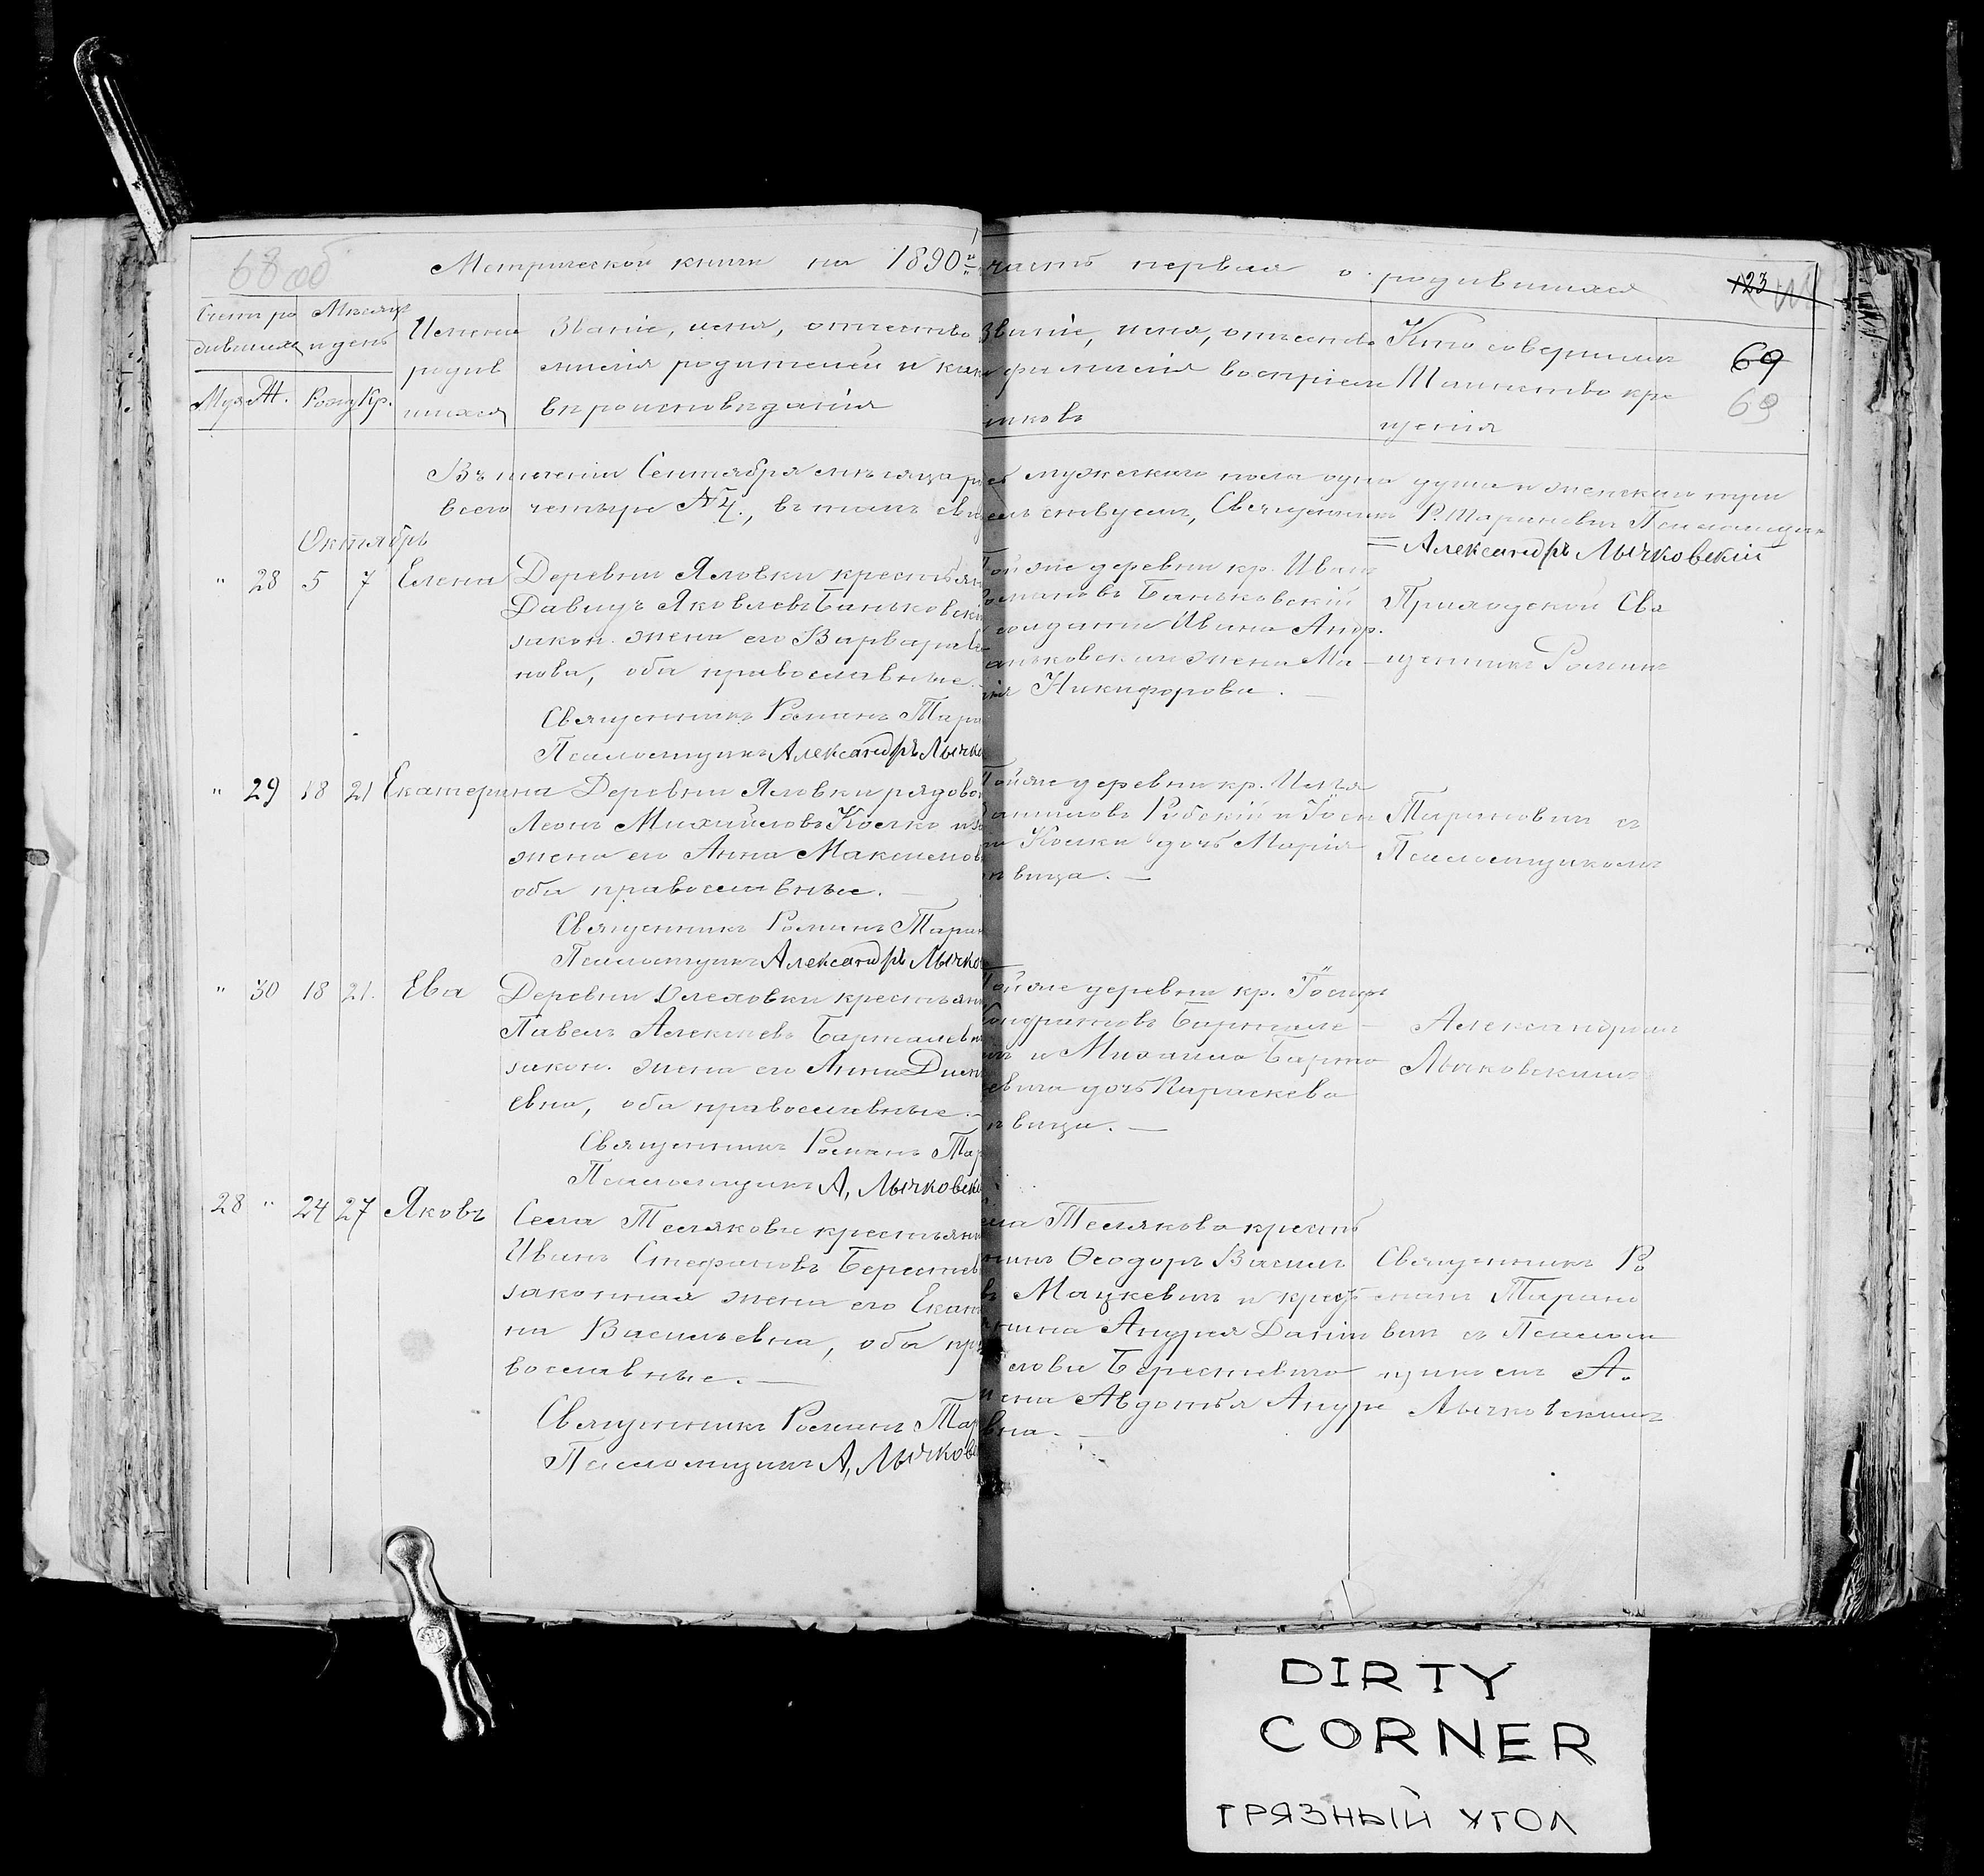 68 об
Метрической книги на 1890й часть первая о родившихся
123
Счетъ ро
дившихся
Мѣсяцъ
и день
Имена
родив
шихся
Званіе, имя, отчество
милія родителей и как
вѣроисповѣданія
Званіе, имя, отчество
фамилія воспріем
никовъ
Кто совершилъ
Таинство кре
щенія
69
69
Муж Ж. Рожд Кр.
Въ теченіи Сентября мѣсяца ро мужескаго пола одна душа и женскаго три
всего четыре №4, въ томъ свид ельствуемъ, Священникъ Р. Тарановичъ Псаломщикъ
= Александръ Лычковскій
Октябрь
" 28 5 7 Елена
Деревни Яловки крестьян
Давидъ Яковлевъ Баньковскі
закон. жена его Варвара
нова, оба православные.
Священникъ Романъ Тара
Псаломщикъ Александръ Лычко
Той же деревни кр. Иван
Романовъ Баньковскій
солдата Ивана Андр.
аньковскаго жена Ма-
рія Никифорова. —
Приходской Свя
щенникъ Романъ
" 29 18 21 Екатерина
Деревни Яловки рядово
Леонъ Михайловъ Коско и з
жена его Анна Максимов
оба православные. —
Священникъ Романъ Таран
Псаломщикъ Александръ Лычко
Той же деревни кр. Илья
Даниловъ Рибскій и Іоси
Коски дочь Марія
вица. —
Тарановичъ съ
Псаломщикомъ
" 30 18 21. Ева
Деревни Олеховки крестьян
Павелъ Алексѣевъ Барталев
закон. жена его Анна Дим
евна, оба православные. —
Священникъ Романъ Тар
Псаломщикъ А, Лычковск
Той же деревни кр. Іосифъ
Кондратовъ Барталe-
и Михаила Барта
евича дочь Параскева
вица. —
Александромъ
Лычковскимъ
28 " 24 27 Яковъ
Села Телякова крестьян
Иванъ Стефановъ Берестев
законная жена его Екате
на Васильевна, оба пра
вославные. —
Священникъ Романъ Тар
Псаломщикъ А, Лычков
Теляково кресть
нинъ Ѳеодоръ Васил
въ Мацкевичъ и кресть
нина Андрея Дани
лова Берестевича
жена Авдотья Андре
вна. —
Священникъ Ро
манъ Тарано
вич съ Псалом
щикомъ А.
Лычковскимъ
DIRTY
CORNER
ГРЯЗНЫЙ УГОЛ